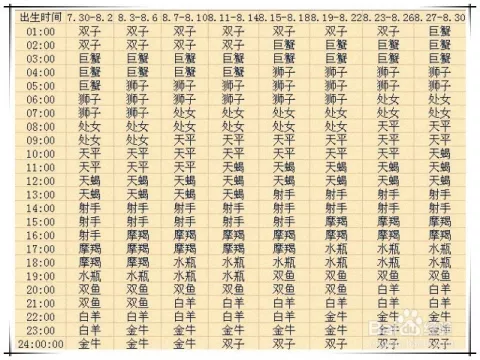 出生时间 7.30-8.2 8.3-8.6 8.7-8.10 8.11-8.14 8.15-8.18 8.19-8.22 8.23-8.26 8.27-8.30
01:00 双子 双子 双子 双子 双子 双子 双子 巨蟹
02:00 双子 双子 双子 双子 巨蟹 巨蟹 巨蟹 巨蟹
03:00 巨蟹 巨蟹 巨蟹 巨蟹 巨蟹 巨蟹 巨蟹 巨蟹
04:00 巨蟹 巨蟹 巨蟹 巨蟹 狮子 狮子 狮子 狮子
05:00 巨蟹 狮子 狮子 狮子 狮子 狮子 狮子 狮子
06:00 狮子 狮子 狮子 狮子 狮子 狮子 处女 处女
07:00 狮子 狮子 处女 处女 处女 处女 处女 处女
08:00 处女 处女 处女 处女 处女 处女 天平 天平
09:00 处女 处女 天平 天平 天平 天平 天平 天平
10:00 天平 天平 天平 天平 天平 天平 天平 天蝎
11:00 天平 天平 天平 天平 天蝎 天蝎 天蝎 天蝎
12:00 天蝎 天蝎 天蝎 天蝎 天蝎 天蝎 天蝎 天蝎
13:00 天蝎 天蝎 天蝎 天蝎 射手 射手 射手 射手
14:00 射手 射手 射手 射手 射手 射手 射手 射手
15:00 射手 射手 射手 射手 射手 摩羯 摩羯 摩羯
16:00 射手 摩羯 摩羯 摩羯 摩羯 摩羯 摩羯 摩羯
17:00 摩羯 摩羯 摩羯 摩羯 水瓶 水瓶 水瓶 水瓶
18:00 摩羯 摩羯 水瓶 水瓶 水瓶 水瓶 水瓶 水瓶
19:00 水瓶 水瓶 水瓶 水瓶 双鱼 双鱼 双鱼 双鱼
20:00 双鱼 双鱼 双鱼 双鱼 双鱼 双鱼 白羊 白羊
21:00 双鱼 双鱼 白羊 白羊 白羊 白羊 白羊 白羊
22:00 白羊 白羊 白羊 白羊 白羊 金牛 金牛 金牛
23:00 白羊 金牛 金牛 金牛 金牛 金牛 金牛 金牛
24:00:00 金牛 金牛 金牛 双子 双子 双子 双子 双子